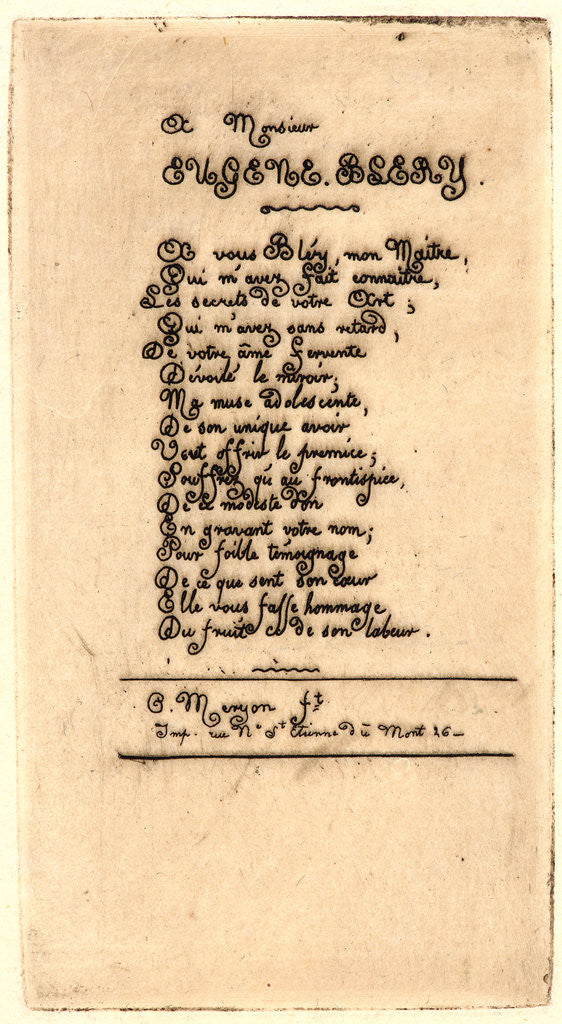 A Monsieur
EUGENE. BLERY.
A vous Bléry, mon Maitre,
Qui m'avez fait connaitre,
Les secrets de votre Art;
Qui m'avez sans retard,
De votre âme fervente
Dévoilé le miroir;
Ma muse adolescente,
De son unique avoir
Veut offrir le premice;
Souffrez qu'au frontispice,
De ce modeste don
En gravant votre nom;
Pour foible témoignage
De ce que sent son cœur
Elle vous fasse hommage
Du fruit ce de son labeur.
C. Meryon ft
Imp. rue Ne St Etienne du Mont 26